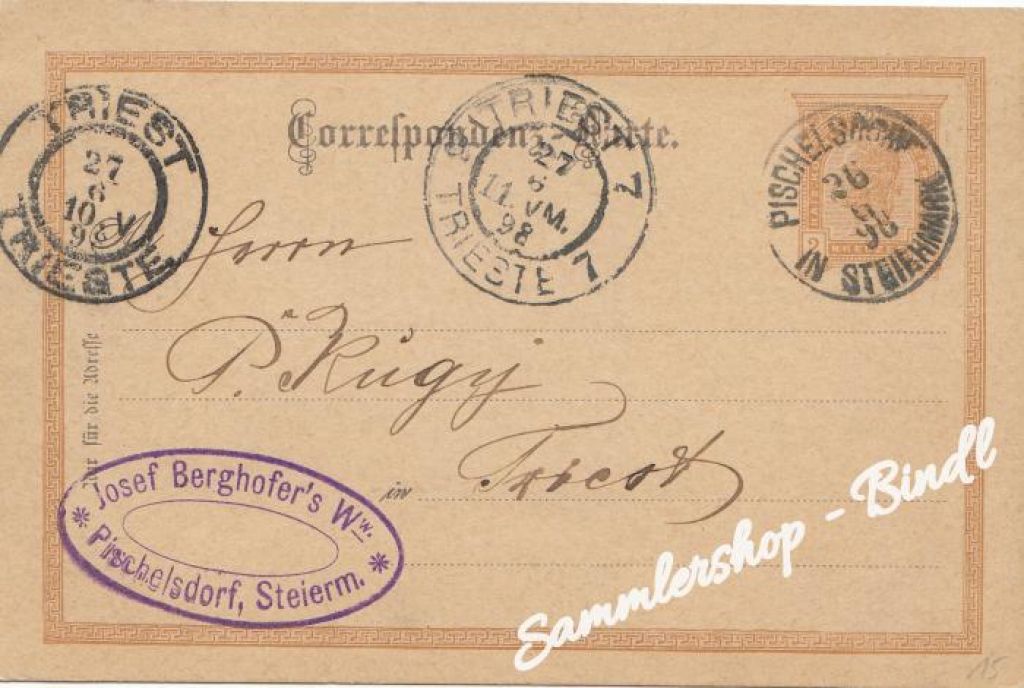 Correspondenz-Karte.
TRIEST
27
6
10 V
98
TRIESTE
TRIEST 7
27
6
11. VM.
98
TRIESTE 7
PISCHELSDORF
26
98
IN STEIERMARK
2
Herrn
P. Kugy
in Triest
Nur für die Adresse
Josef Berghofer's Ww.
Pischelsdorf, Steierm.
Sammlershop - Bindl
15